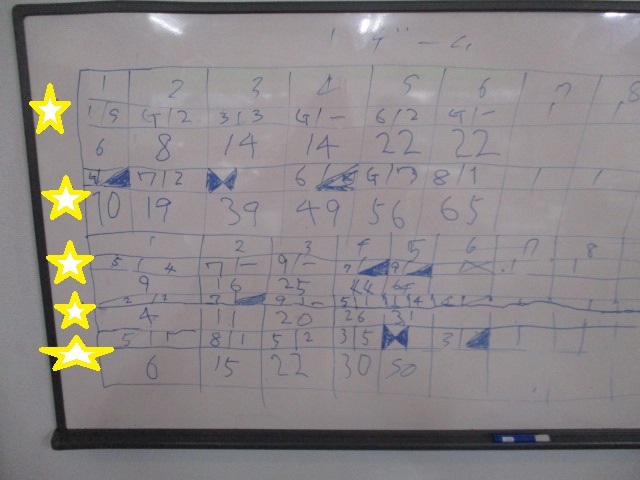 1 ゲーム
1 2 3 4 5 6 7 8
1 5 G/2 3/3 G/- 6/2 G/-
6 8 14 14 22 22
G/ 7/2 6 G/7 8/1
10 19 39 49 56 65
1 2 3 4 5 6 7 8
5/4 7/- 9/- 7/ 9/
9 16 25 44
2/2 7/ 9/- 5/1 1/4
4 11 20 26 31
5/1 8/1 5/2 3/5 3/
6 15 22 30 50